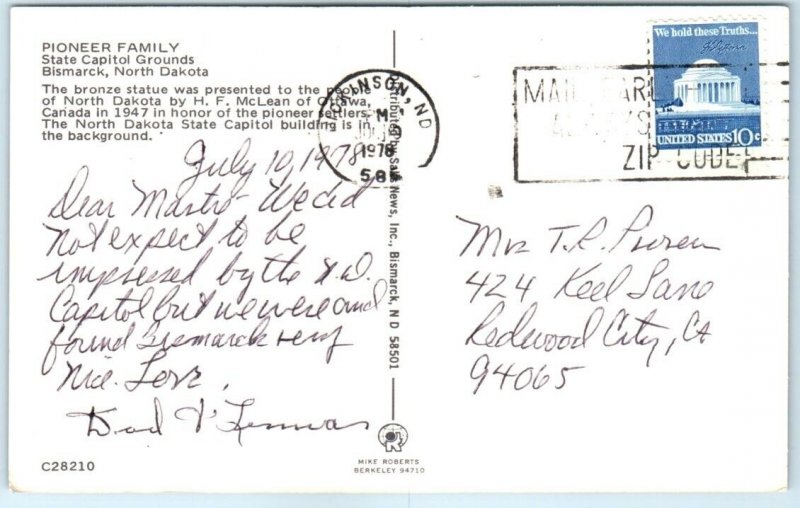 PIONEER FAMILY
State Capitol Grounds
Bismarck, North Dakota
The bronze statue was presented to the people
of North Dakota by H. F. McLean of Ottawa,
Canada in 1947 in honor of the pioneer settlers.
The North Dakota State Capitol building is in
the background.
July 10, 1978
Dear Marti- We did
not expect to be
impressed by the N.D.
Capitol but we were and
found Bismarck very
nice. Love,
Dad &
C28210
Distributed by Saks News, Inc., Bismarck, N D 58501
MIKE ROBERTS
BERKELEY 94710
KINSON, ND
M
1978
58
MAIL EARL
ALWAYS
ZIP CODE
We hold these Truths...
UNITED STATES 10c
Mrs T. R.
424 Keel Lane
Redwood City, CA
94065